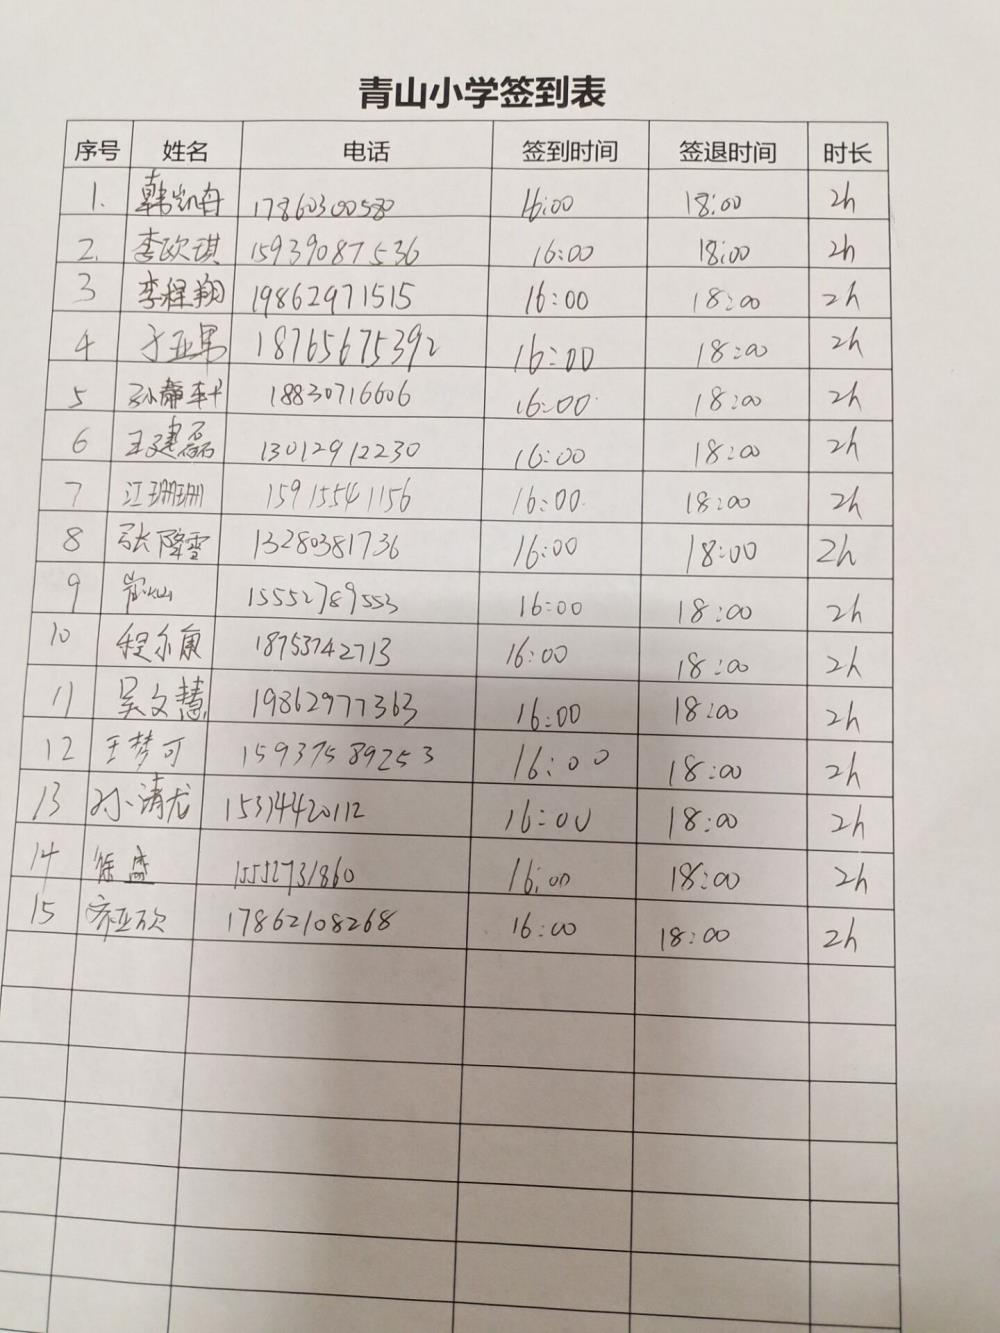 青山小学签到表
序号 姓名 电话 签到时间 签退时间 时长
1. 韩凯舟 17860300580 16:00 18:00 2h
2. 李欧琪 15939087536 16:00 18:00 2h
3 李程翔 19862971515 16:00 18:00 2h
4 于亚男 18765675392 16:00 18:00 2h
5 孙静轩 18830716606 16:00 18:00 2h
6 王建磊 13012912230 16:00 18:00 2h
7 江珊珊 15915541156 16:00 18:00 2h
8 张降雪 13280381736 16:00 18:00 2h
9 15552789553 16:00 18:00 2h
10 程尔康 18753742713 16:00 18:00 2h
11 吴文慧 19862977363 16:00 18:00 2h
12 王梦可 15937589253 16:00 18:00 2h
13 孙清龙 15314420112 16:00 18:00 2h
14 徐盛 15552731860 16:00 18:00 2h
15 17862108268 16:00 18:00 2h